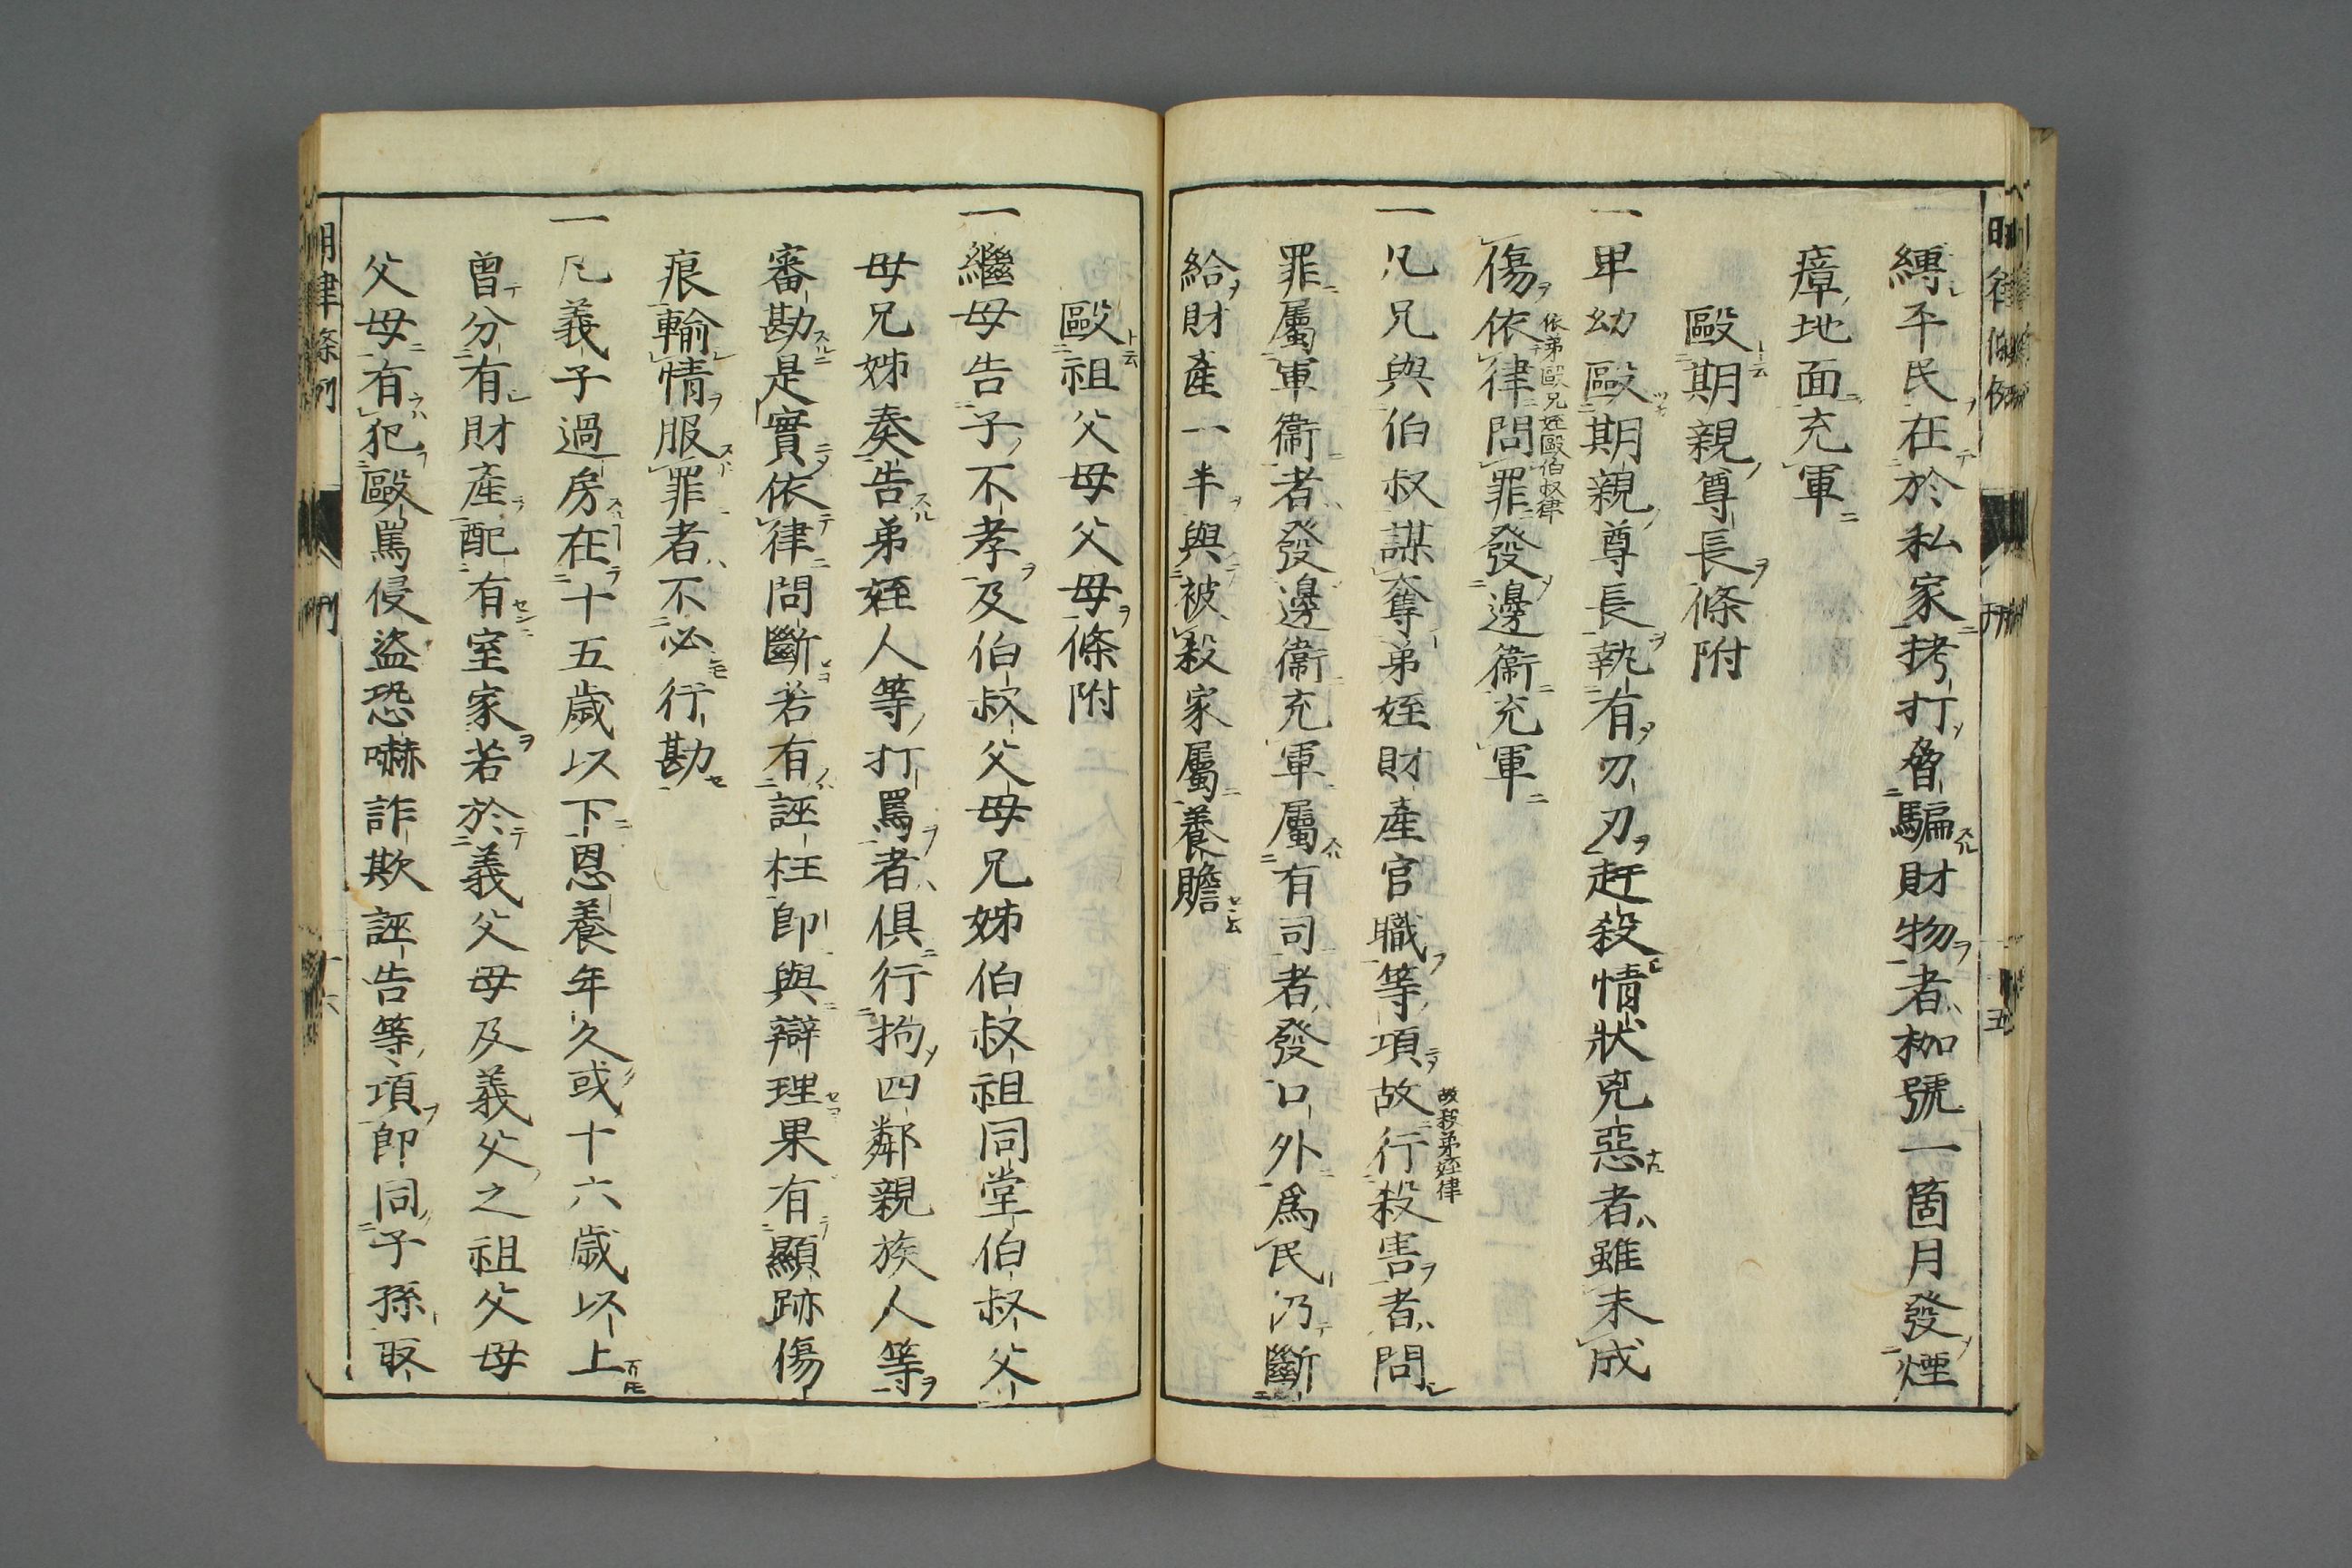 縛平民在於私家拷打脅騙財物者枷號一箇月發煙
瘴地面充軍
毆期親尊長條附
一卑幼毆期親尊長執有刀刃赶殺情狀兇惡者雖未成
傷依律問罪發邊衞充軍
依弟毆兄姪毆伯叔律
一凡兄與伯叔謀奪弟姪財產官職等項故行殺害者問
故殺弟姪律
罪屬軍衞者發邊衞充軍屬有司者發口外爲民仍斷
給財產一半與被殺家屬養贍
毆祖父母父母條附
一繼母告子不孝及伯叔父母兄姊伯叔祖同堂伯叔父
母兄姊奏告弟姪人等打罵者俱行拘四鄰親族人等
審勘是實依律問斷若有誣枉卽與辯理果有顯跡傷
痕輸情服罪者不必行勘
一凡義子過房在十五歲以下恩養年久或十六歲以上
曾分有財產配有室家若於義父母及義父之祖父母
父母有犯毆罵侵盜恐嚇詐欺誣告等項卽同子孫取